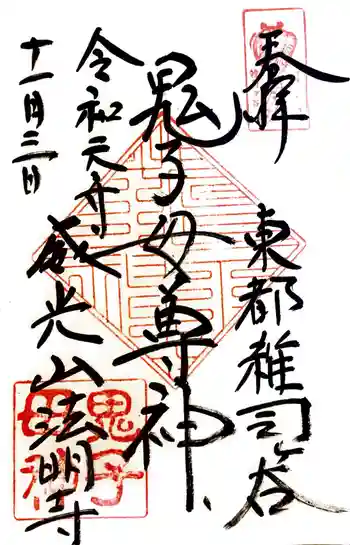 奉拝
東都雑司ヶ谷
鬼子母尊神
威光山法明寺
令和元年
十一月三日
鬼子
母神